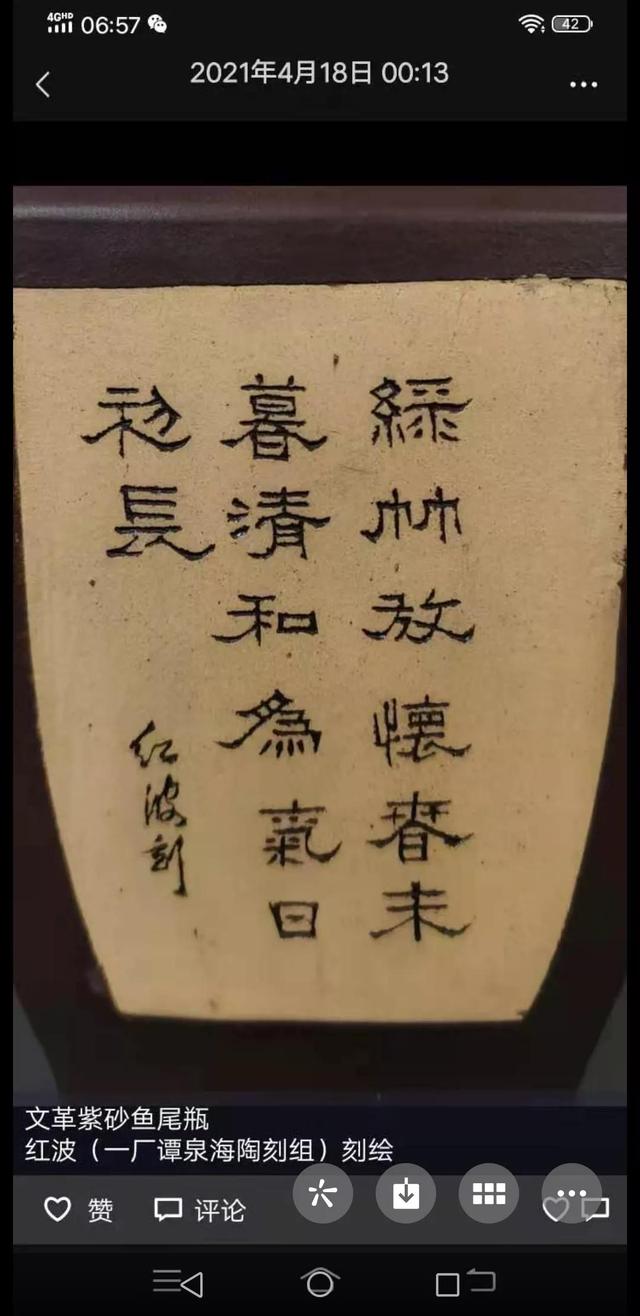 4GHD 06:57 42
2021年4月18日 00:13
綠竹放懷春未
暮清和為氣日
初長
红波刻
文革紫砂鱼尾瓶
红波（一厂谭泉海陶刻组）刻绘
赞 评论